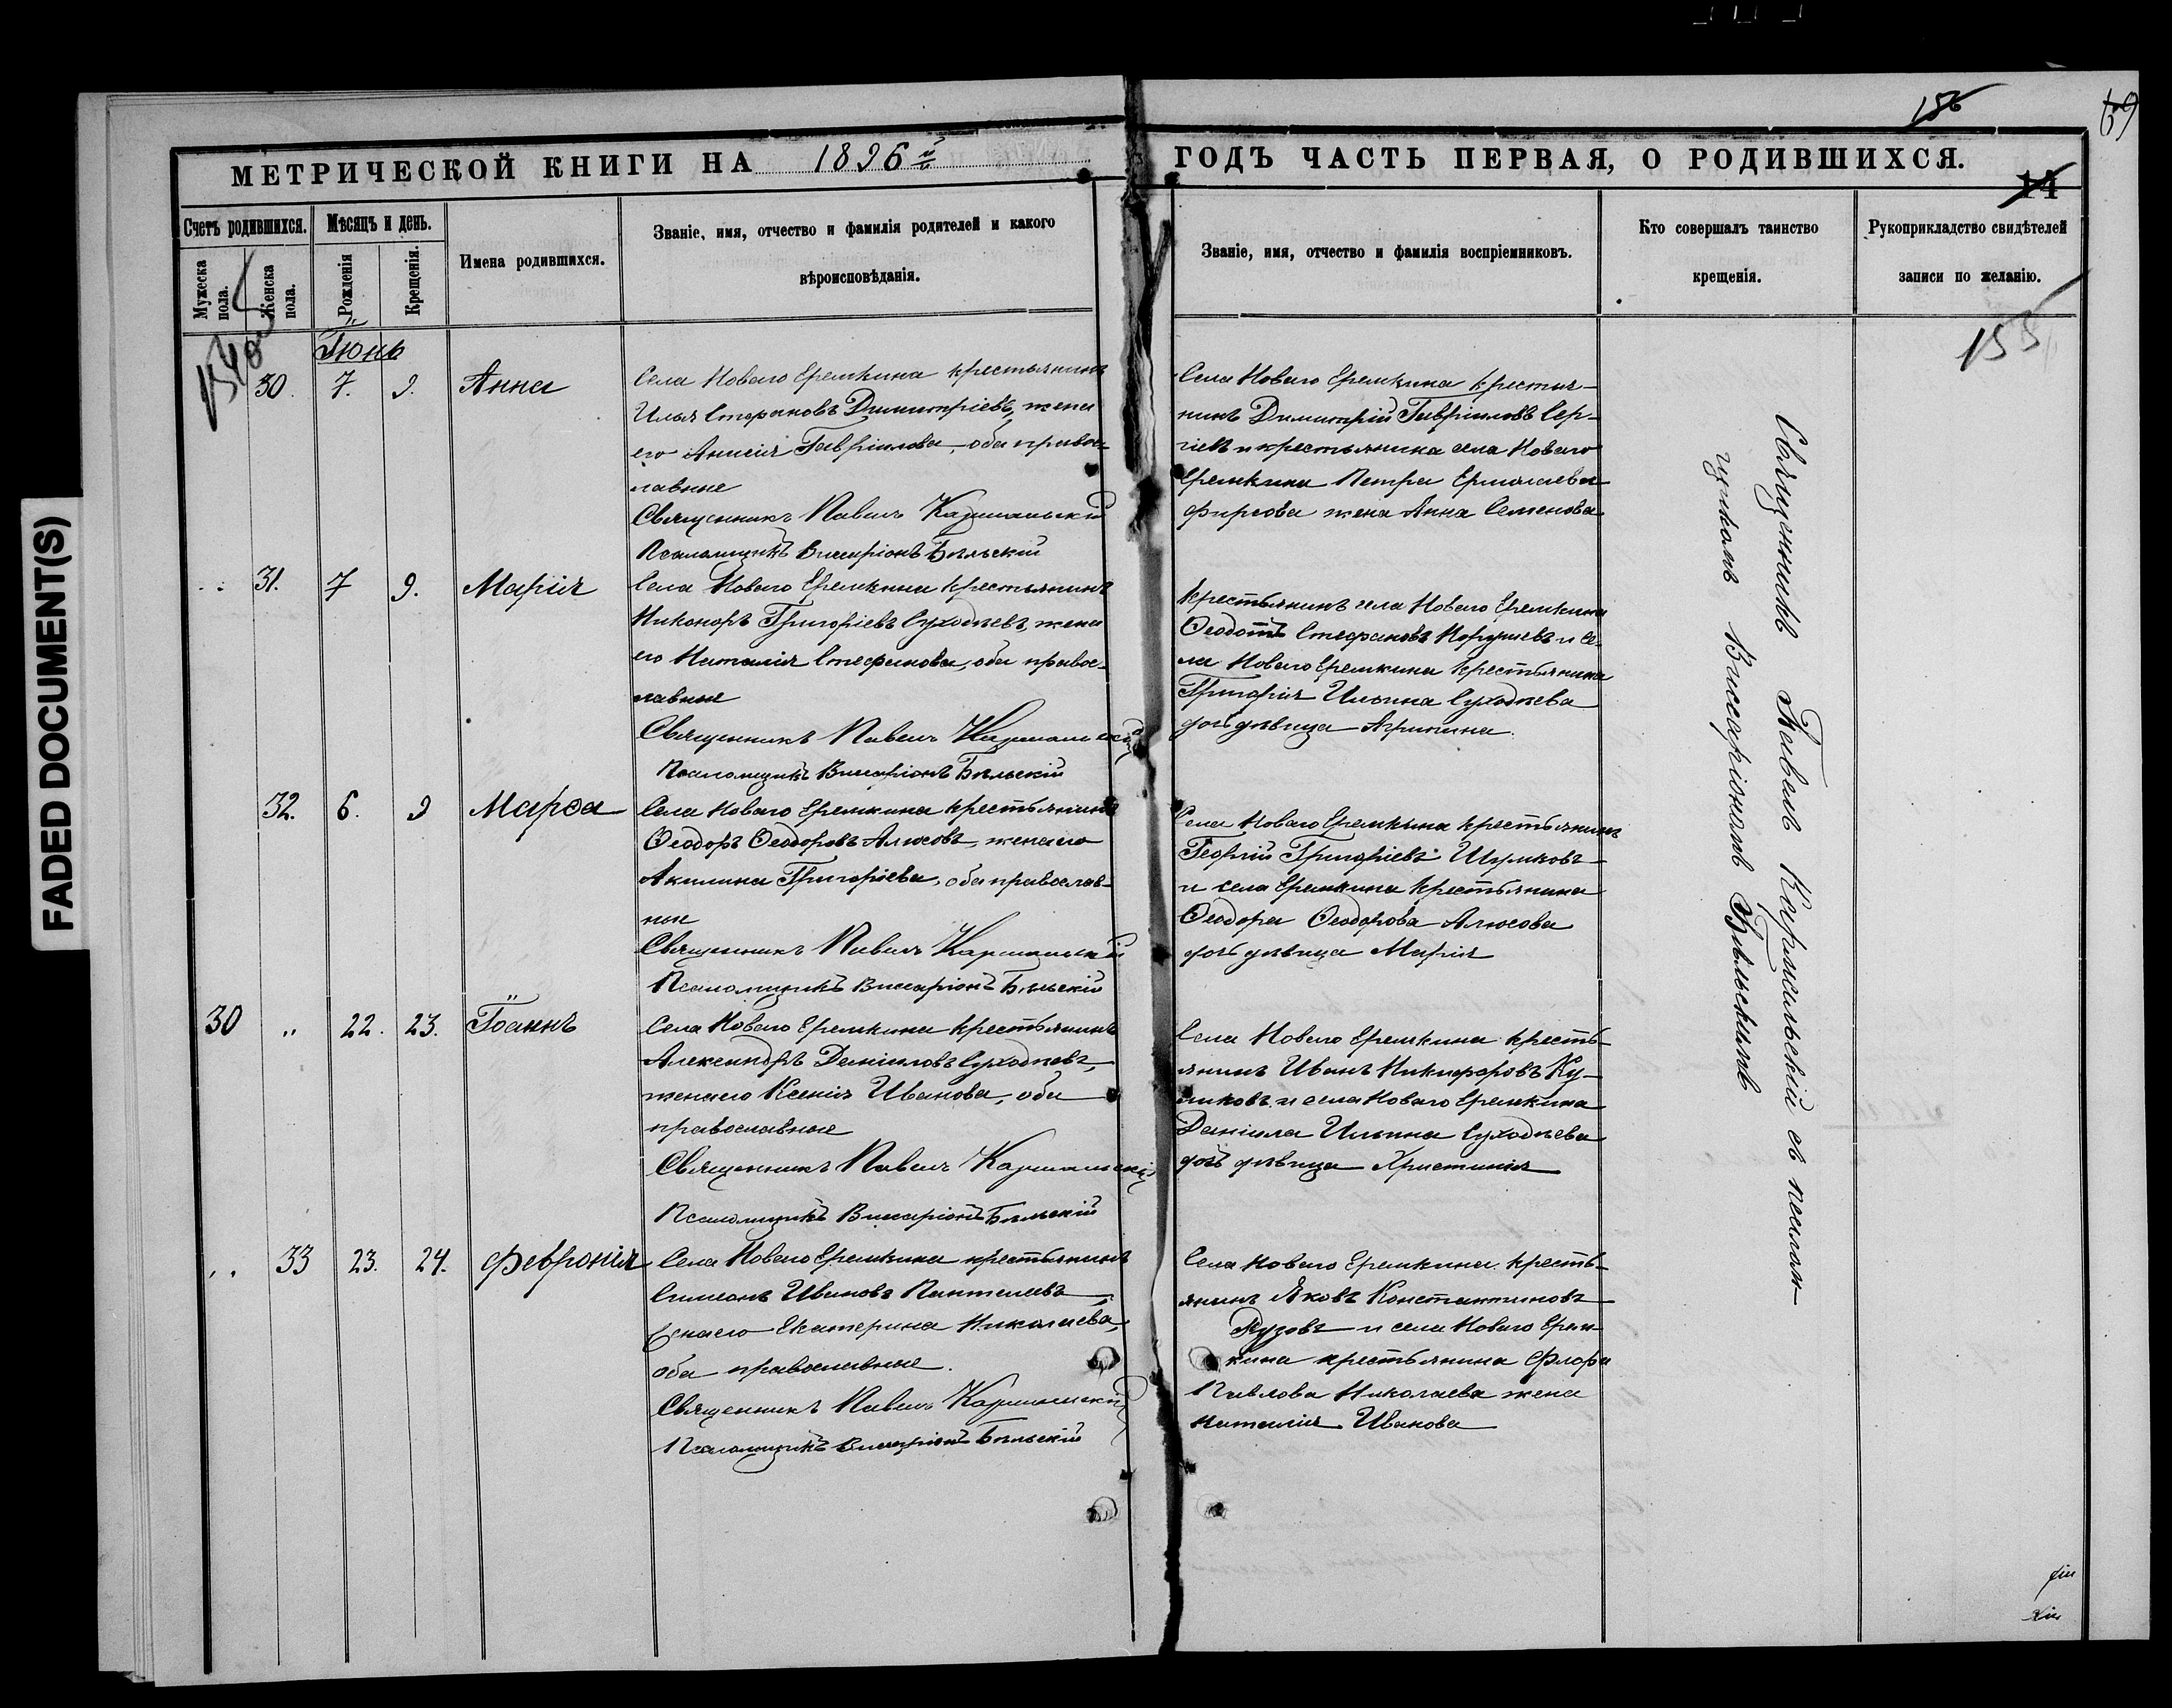 FADED DOCUMENT(S)
156
МЕТРИЧЕСКОЙ КНИГИ НА 1896й
ГОДЪ ЧАСТЬ ПЕРВАЯ, О РОДИВШИХСЯ.
14
155
Счетъ родившихся.
Мужеска пола.
Женска пола.
Мѣсяцъ и день.
Рожденія
Крещенія.
Имена родившихся.
Званіе, имя, отчество и фамилія родителей и какого
вѣроисповѣданія.
Званіе, имя, отчество и фамилія воспріемниковъ.
Кто совершалъ таинство
крещенія.
Рукоприкладство свидѣтелей
записи по желанію.
Іюнь
30. 7. 9. Анна
Села Новаго Еремкина крестьянинъ
Илья Стефановъ Димитріевъ, жена
его Анисія Гавріилова, оба правос-
лавные
Священникъ Павелъ
Псаломщикъ Виссаріонъ Бѣльскій
Села Новаго Еремкина крестья-
нинъ Димитрій Гавріиловъ Сер-
гіевъ и крестьянина села Новаго
Еремкина Петра Ермолаева
Фирсова жена Анна Семенова
31. 7 9. Марія
Села Новаго Еремкина крестьянинъ
Никаноръ Григоріевъ Суходѣевъ, жена
его Наталія Стефанова, оба правос-
лавные
Священникъ Павелъ
Псаломщикъ Виссаріонъ Бѣльскій
Крестьянинъ села Новаго Еремкина
Ѳеодотъ Стефановъ и се-
ла Новаго Еремкина крестьянина
Григорія Ильина Суходѣева
дочь дѣвица Агрипина.
32. 6. 9 Марѳа
Села Новаго Еремкина крестьянинъ
Ѳеодоръ Ѳеодоровъ Алюсовъ, жена его
Акилина Григоріева, оба православ-
ные
Священникъ Павелъ
Псаломщикъ Виссаріонъ Бѣльскій
Села Новаго Еремкина крестьянинъ
Георгій Григоріевъ Шумковъ
и села Еремкина крестьянина
Ѳеодора Ѳеодорова Алюсова
дочь дѣвица Марія
30 " 22. 23. Іоаннъ
Села Новаго Еремкина крестьянинъ
Александръ Даніиловъ Суходѣевъ,
жена его Ксенія Иванова, оба
православные
Священникъ Павелъ
Псаломщикъ Виссаріонъ Бѣльскій
Села Новаго Еремкина кресть-
янинъ Иванъ Никифоровъ Ку-
ликовъ и села Новаго Еремкина
Даніила Ильина Суходѣева
дочь дѣвица Христинія
33 23. 24. Февронія
Села Новаго Еремкина крестьянинъ
Симеонъ Ивановъ Пантелеевъ
жена его Екатерина Николаева,
оба православные.
Священникъ Павелъ
Псаломщикъ Виссаріонъ Бѣльскій
Села Новаго Еремкина кресть-
янинъ Яковъ Константиновъ
и села Новаго Ерем-
кина крестьянина Флора
Павлова Николаева жена
Наталія Иванова
Священникъ Павелъ съ псалом-
щикомъ Виссаріономъ Бѣльскимъ